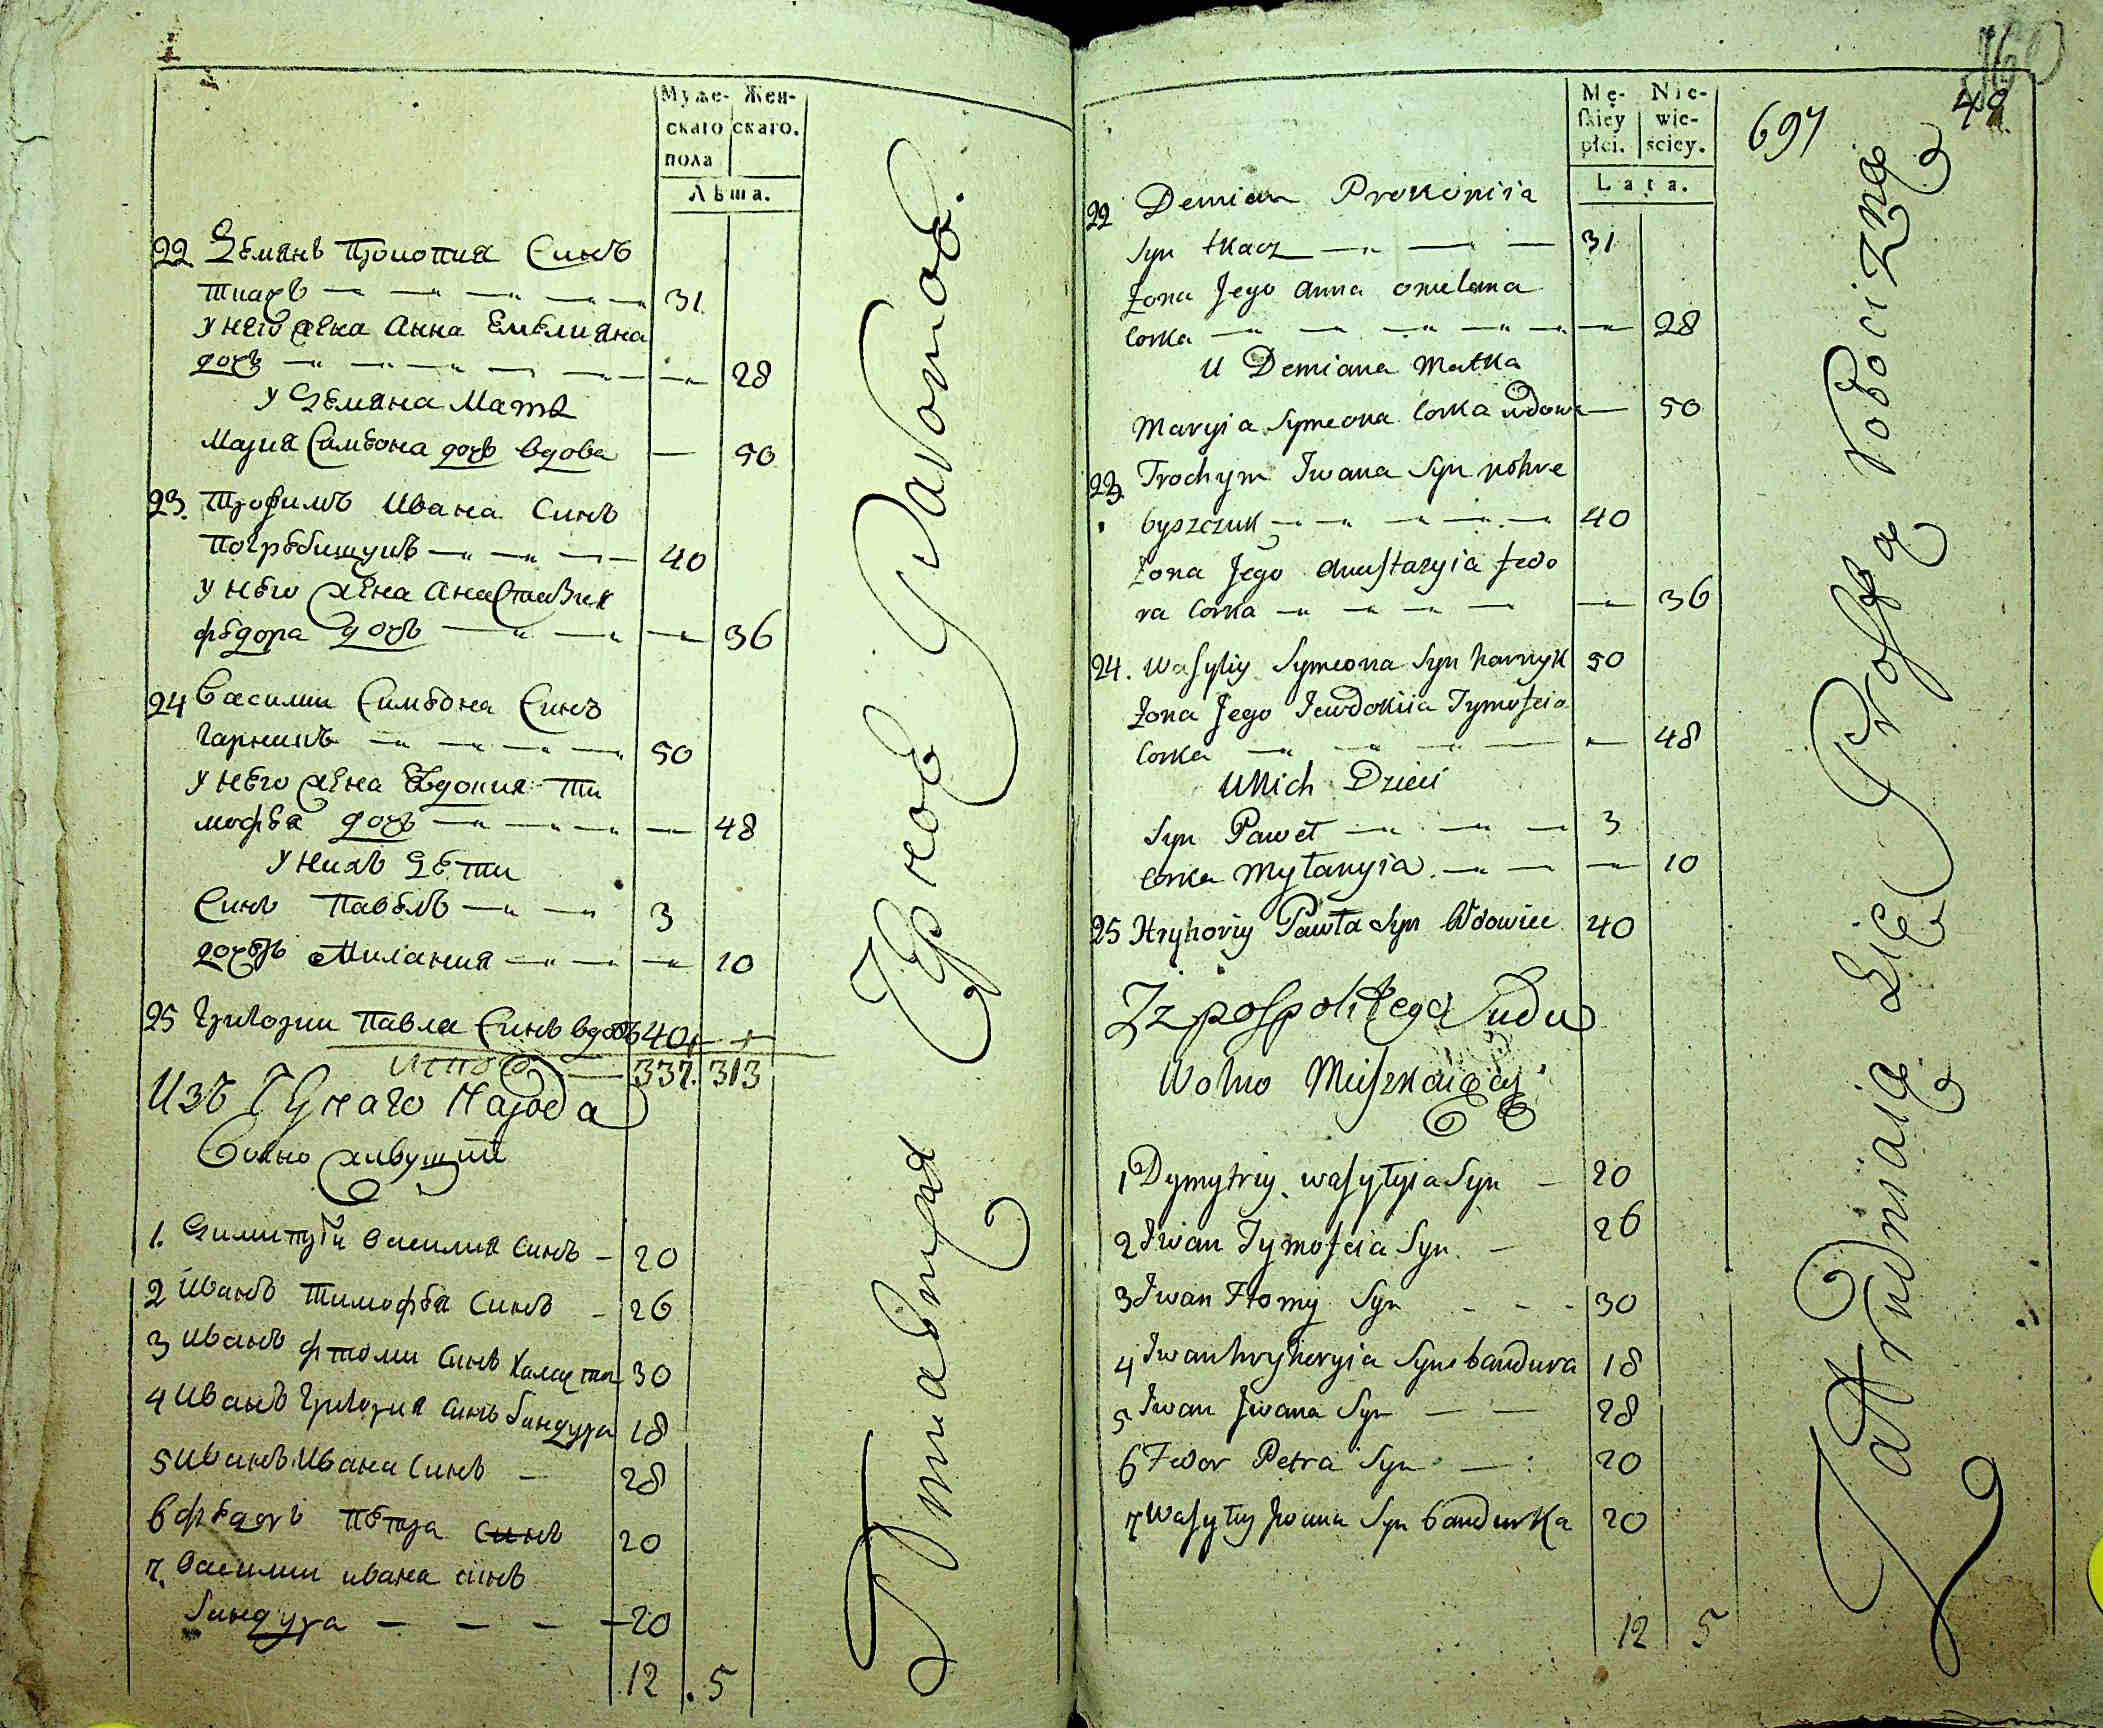 Муже- Жен-
скаго скаго.
пола
Лѣта.
22 Демянъ Прокопия Синъ
ткачъ 31
у него жена Анна Емелияна
дочь 28
у Демяна Мать
Мария Симеона дочь вдова 50
23. Трофимъ Ивана Синъ
Погребищукъ 40
у него жена Анастазия
Федора дочь 36
24 Василии Симеона Синъ
Гарникъ 50
у него жена Евдокия Ти
мофея дочь 48
у нихъ Дети
Синъ Павелъ 3
дочеръ Милания 10
25 Григории Павла Синъ вдовъ 40
Итого 337. 313
Изъ Чернаго Народа
Волно живущии
1. Димитрїи Василия Синъ 20
2 Иванъ Тимофея Синъ 26
3 Иванъ Фтоми Синъ 30
4 Иванъ Григория Синъ бандура 18
5 Иванъ Ивана Синъ 28
6 Федоръ Петра Синъ 20
7. Василии Ивана Синъ
бандура 20
12 . 5
Черноѣ Работоѣ.
Мę-
skiey
płci.
Nie-
wie-
sciey.
Lata.
697
48.
22 Demian Prokopiia
Syn tkacz 31
Żona Jego Anna omelana
Corka 28
U Demiana Matka
Maryia Symeona Corka wdowa 50
23 Trochym Iwana Syn pohre
byszczuk 40
Żona Jego Anastazyia Fedo
ra Corka 36
24. Wasyliy Symeona Syn harnyk 50
Żona Jego Jewdokiia Tymofeia
Corka 48
U Nich Dzieci
Syn Paweł 3
Corka Myłanyia 10
25 Hryhoriy Pawła Syn Wdowiec 40
Iz pospolitego Ludu
Wolno Miszkaiący
1 Dymytriy wasyłyia Syn 20
2 Iwan Tymofeia Syn 26
3 Iwan Ftomy Syn 30
4 Iwan hryhoryia Syn bandura 18
5 Iwan Iwana Syn 28
6 Fedor Petra Syn 20
7 Wasyłiy Iwana Syn bandurka 20
12 5
Zatrudniaią Się Prostą Robocizną